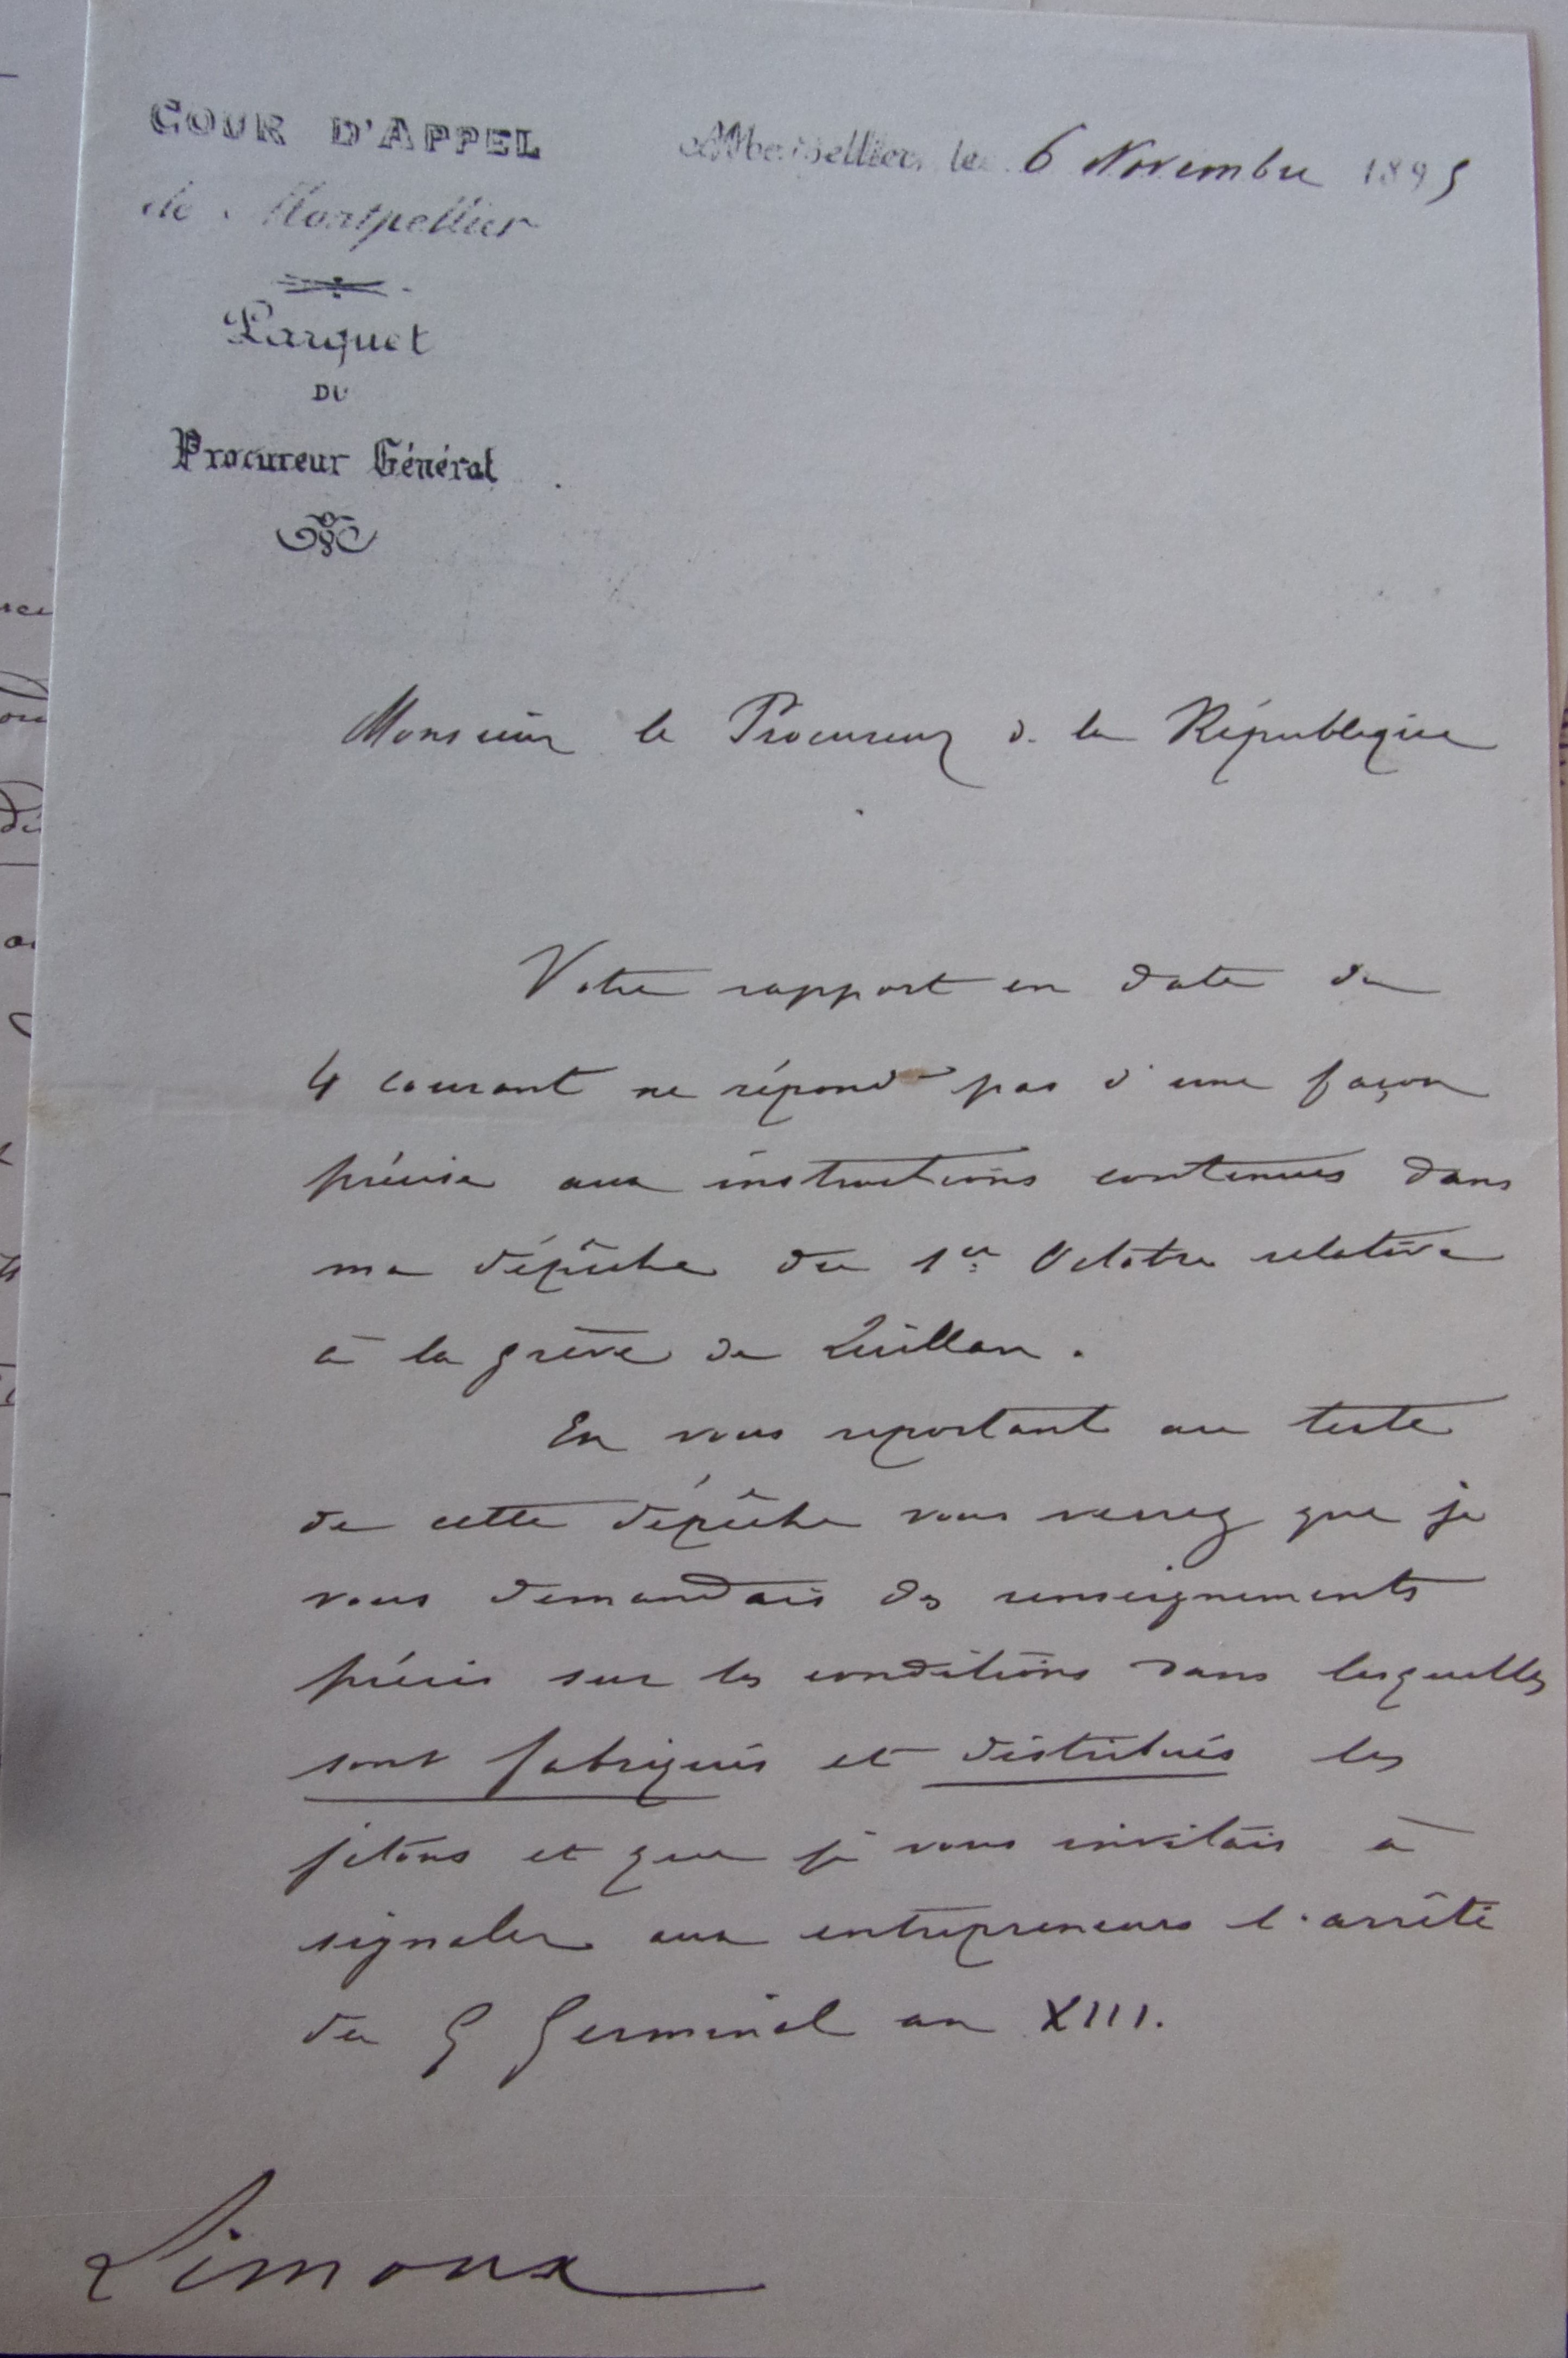 COUR D'APPEL
de Montpellier
Parquet
DU
Procureur Général
Montpellier, le 6 Novembre 1895
Monsieur le Procureur de la République
Votre rapport en date du
4 courant ne répond pas d'une façon
précise aux instructions contenues dans
ma dépêche du 1er Octobre relative
à la grève de Quillan.
En vous reportant au texte
de cette dépêche vous verrez que je
vous demandais des renseignements
précis sur les conditions dans lesquelles
sont fabriqués et distribués les
jetons et que je vous invitais à
signaler aux entrepreneurs l'arrêté
du Germinal an XIII.
Limoux